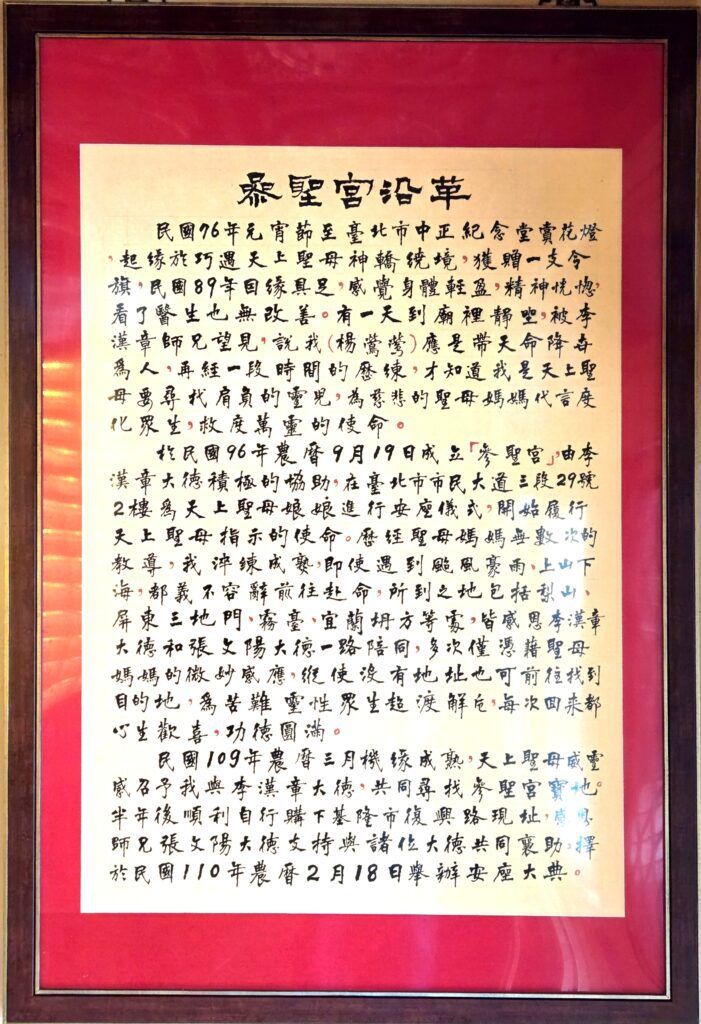 參聖宮沿革
民國76年元宵節至臺北市中正紀念堂賣花燈
，起緣於巧遇天上聖母神轎繞境，獲贈一支令
旗，民國89年因緣具足，感覺身體輕盈，精神恍惚，
看了醫生也無改善。有一天到廟裡靜坐，被李
漢章師兄望見，說我(楊鶯鶯)應是帶天命降世
為人，再經一段時間的歷練，才知道我是天上聖
母要尋找肩負的靈兒，為慈悲的聖母媽媽代言度
化眾生，救度萬靈的使命。
於民國96年農曆9月19日成立「參聖宮」，由李
漢章大德積極的協助，在臺北市市民大道三段29號
2樓為天上聖母娘娘進行安座儀式，開始履行
天上聖母指示的使命。歷經聖母媽媽無數次的
教導，我淬練成寮，即使遇到颱風豪雨，上山下
海，都義不容辭前往赴命，所到之地包括梨山、
屏東三地門、霧臺、宜蘭坍方等處，皆感恩李漢章
大德和張文陽大德一路陪同，多次僅憑藉聖母
媽媽的微妙感應，縱使沒有地址也可前往找到
目的地，為苦難靈性眾生超渡解厄，每次回來都
心生歡喜，功德圓滿。
民國109年農曆三月機緣成熟，天上聖母威靈
感召予我與李漢章大德，共同尋找參聖宮寶地。
半年後順利自行購下基隆市復興路現址，感恩
師兄張文陽大德支持與諸位大德共同襄助，擇
於民國110年農曆2月18日舉辦安座大典。